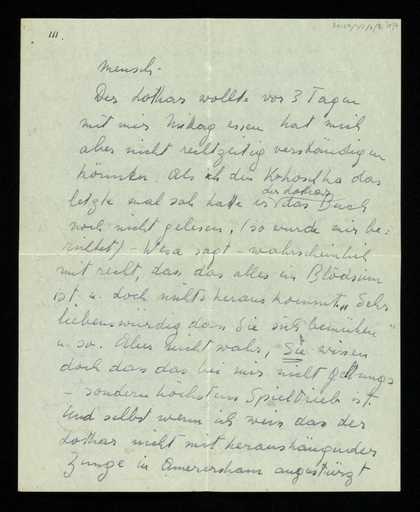 III.
Mensch -
Der Lothar wollte vor 3 Tagen
mit mir Mittag essen hat mich
aber nicht rechtzeitig verständigen
können. Als ich den Kokoschka das
letzte mal sah hatte er der Lothar das Buch
noch nicht gelesen, (so wurde mir be-
richtet) - Wera sagt - wahrscheinlich
mit recht, dass das alles ein Blödsinn
ist u. doch nichts herauskommt, "Sehr
liebenswürdig dass Sie sich bemühen"
u. so. Aber nicht wahr, Sie wissen
doch dass das bei mir nicht
- sondern höchstens Spieltrieb ist.
Und selbst wenn ich weis das der
Lothar nicht mit heraushängender
Zunge in Amerersham angestürzt